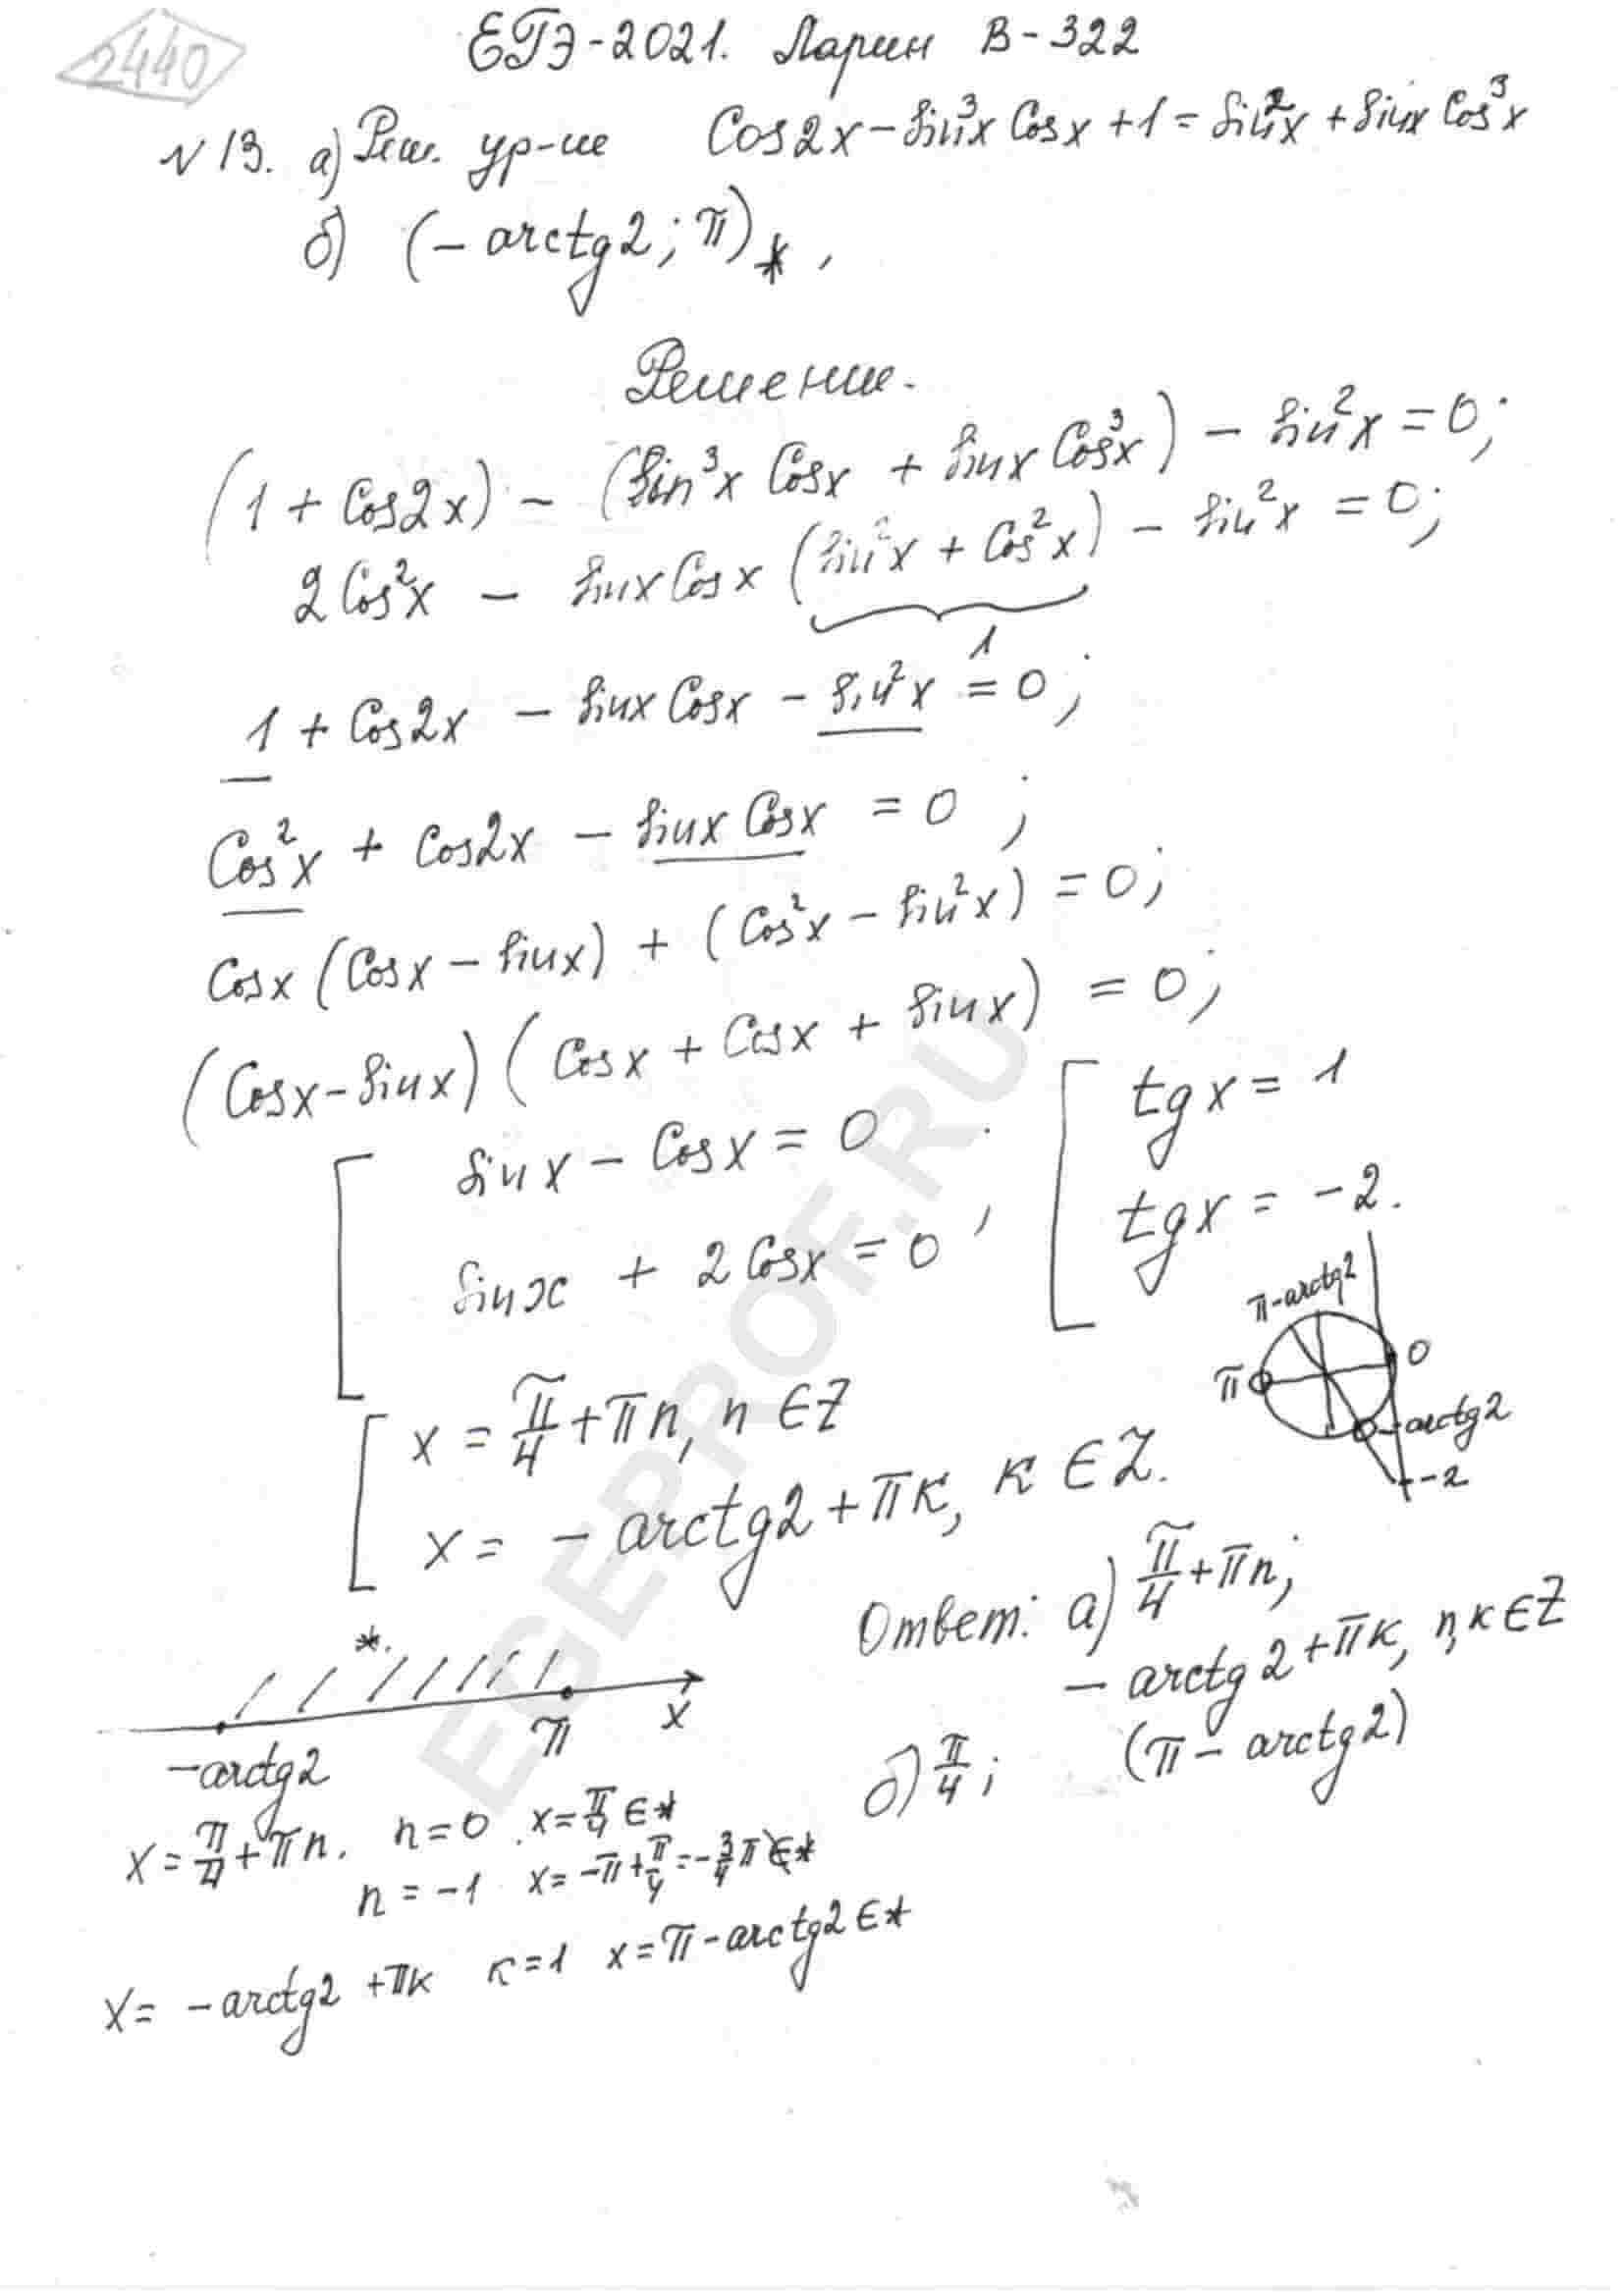 2440
ЕГЭ-2021. Ларин В-322
№13. а) Реш. ур-ие Cos2x - sin³x Cosx + 1 = sin²x + sinx Cos³x
б) (- arctg2; π)*,
Решение.
(1 + Cos2x) - (sin³x Cosx + sinx Cos³x) - sin²x = 0;
2Cos²x - sinx Cosx (sin²x + Cos²x) - sin²x = 0;
1
1 + Cos2x - sinx Cosx - sin²x = 0;
Cos²x + Cos2x - sinx Cosx = 0;
Cosx (Cosx - sinx) + (Cos²x - sin²x) = 0;
(Cosx - sinx) (Cosx + Cosx + sinx) = 0;
[ sinx - Cosx = 0
sinx + 2Cosx = 0 ;
[ tgx = 1
tgx = -2.
π-arctg2
0
π
-arctg2
-2
[ x = π/4 + πn, n ∈ Z
x = - arctg2 + πк, к ∈ Z.
Ответ: а) π/4 + πn;
- arctg2 + πк, n,к ∈ Z
б) π/4; (π - arctg2)
*.
-arctg2
π
x
x = π/4 + πn. n = 0 . x = π/4 ∈ *
n = -1 x = -π + π/4 = -3/4 π ∉ *
x = - arctg2 + πк к = 1 x = π - arctg2 ∈ *
EGEPROF.RU